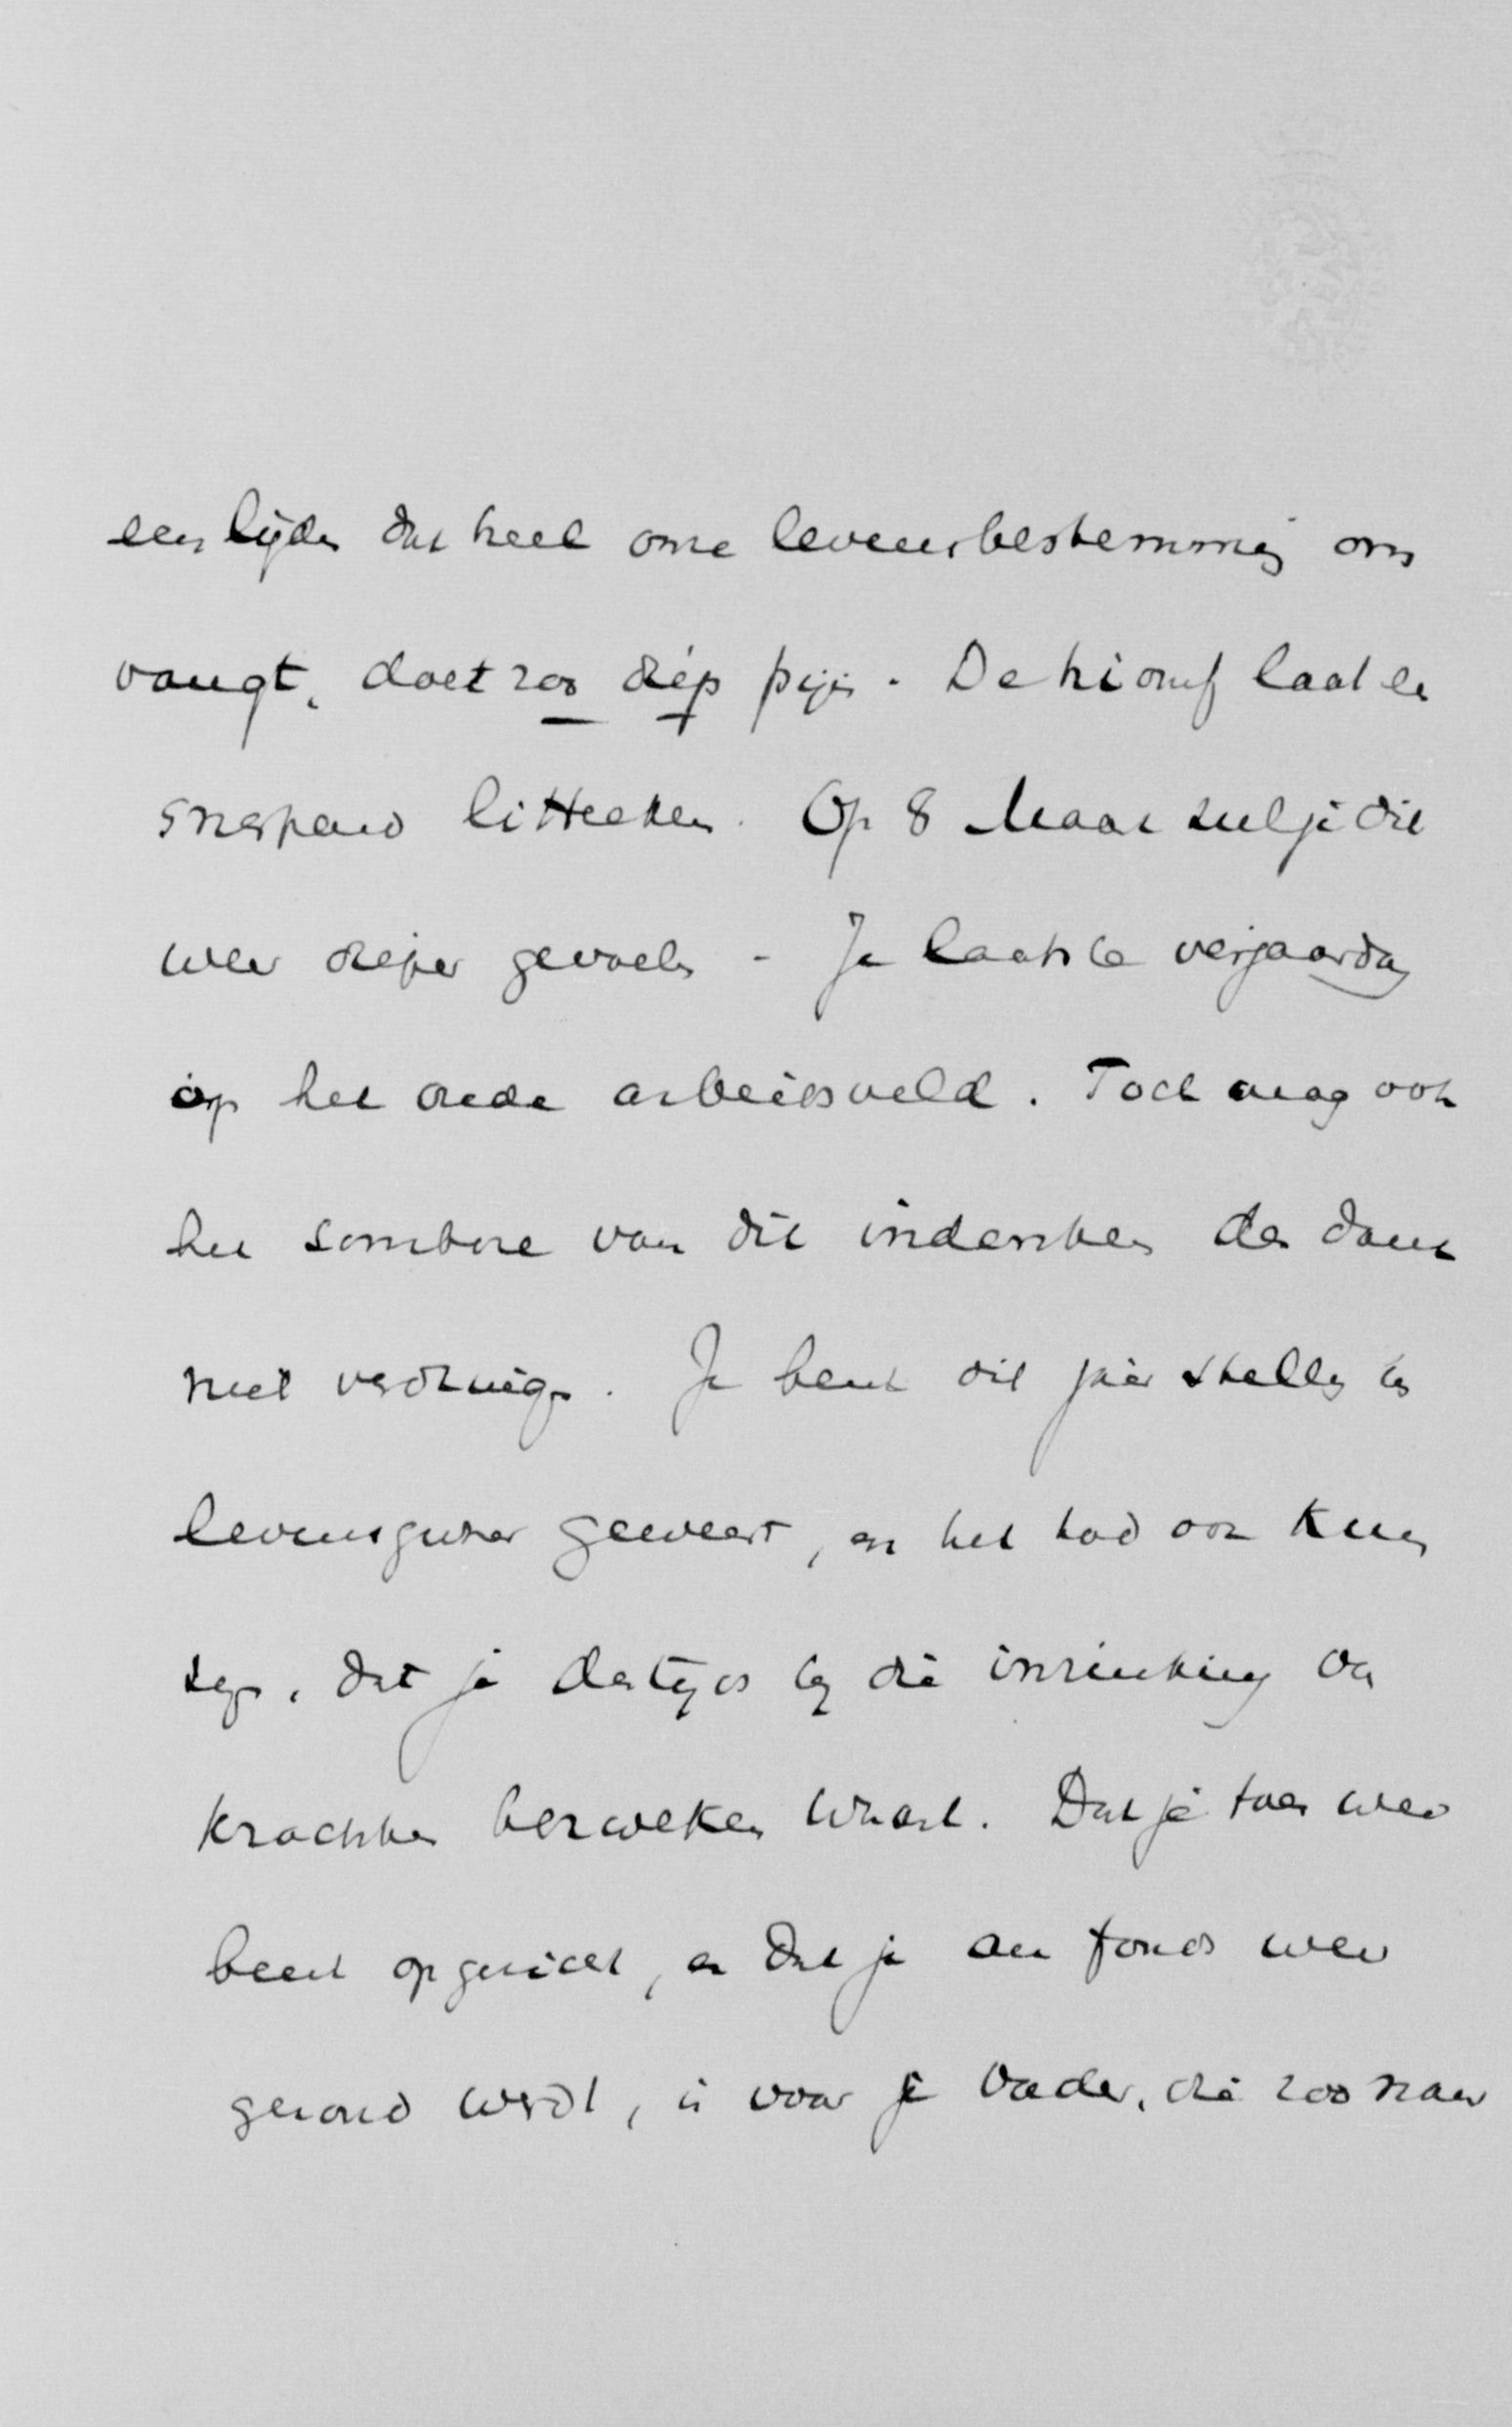 een lijden dat heel onze levensbestemming om
vangt, doet zoo diép pijn. De triomf laat een
snerpend litteeken. Op 8 Maart zul je dit
weer dieper gevoelen - Je laatste verjaardag
op het oude arbeidsveld. Toch mag ook
het sombere van dit indenken den dank
niet verdringen. Je bent dit jaar
levens geweest, en het had ook kunnen
zijn, dat je destijds bij die inzinking van
krachten bezweken waart. Dat je toen weer
bent opgericht, en dat je au fond weer
gezond werdt, is voor je Vader, die zoo naar